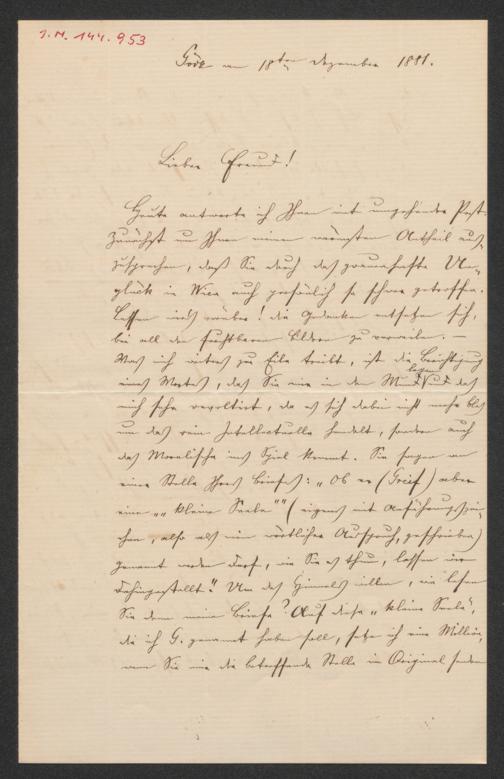 I.N. 144.953
Görz am 18ten Dezember 1881.
Lieber Freund!
Heute antworte ich Ihnen mit umgehender Post.
Zunächst um Ihnen meinen wärmsten Antheil aus-
zusprechen, daß Sie durch das grauenhafte Un-
glück in Wien auch persönlich so schwer getroffen.
Lassen wir's vorüber! die Gedanken entsetzen sich,
bei all den furchtbaren Bildern zu verweilen. —
Was mich weiters zu Eile treibt, ist die Berichtigung
eines Wortes, das Sie mir in den Mund legen und das
mich sehr revoltirt, da es sich dabei nicht mehr blos
um das rein Intellectuelle handelt, sondern auch
das Moralische ins Spiel kommt. Sie sagen an
einer Stelle Ihres Briefes: „Ob er (Greif) aber
eine „„kleine Seele"" (eigens mit Anführungszei-
chen, also als ein wörtlicher Ausspruch, geschrieben)
genannt werden darf, wie Sie es thun, lassen wir
dahingestellt." Um des Himmels willen, wie lesen
Sie denn meine Briefe? Auf diese „kleine Seele",
die ich G. genannt haben soll, setze ich eine Million,
wenn Sie mir die betreffende Stelle im Original senden